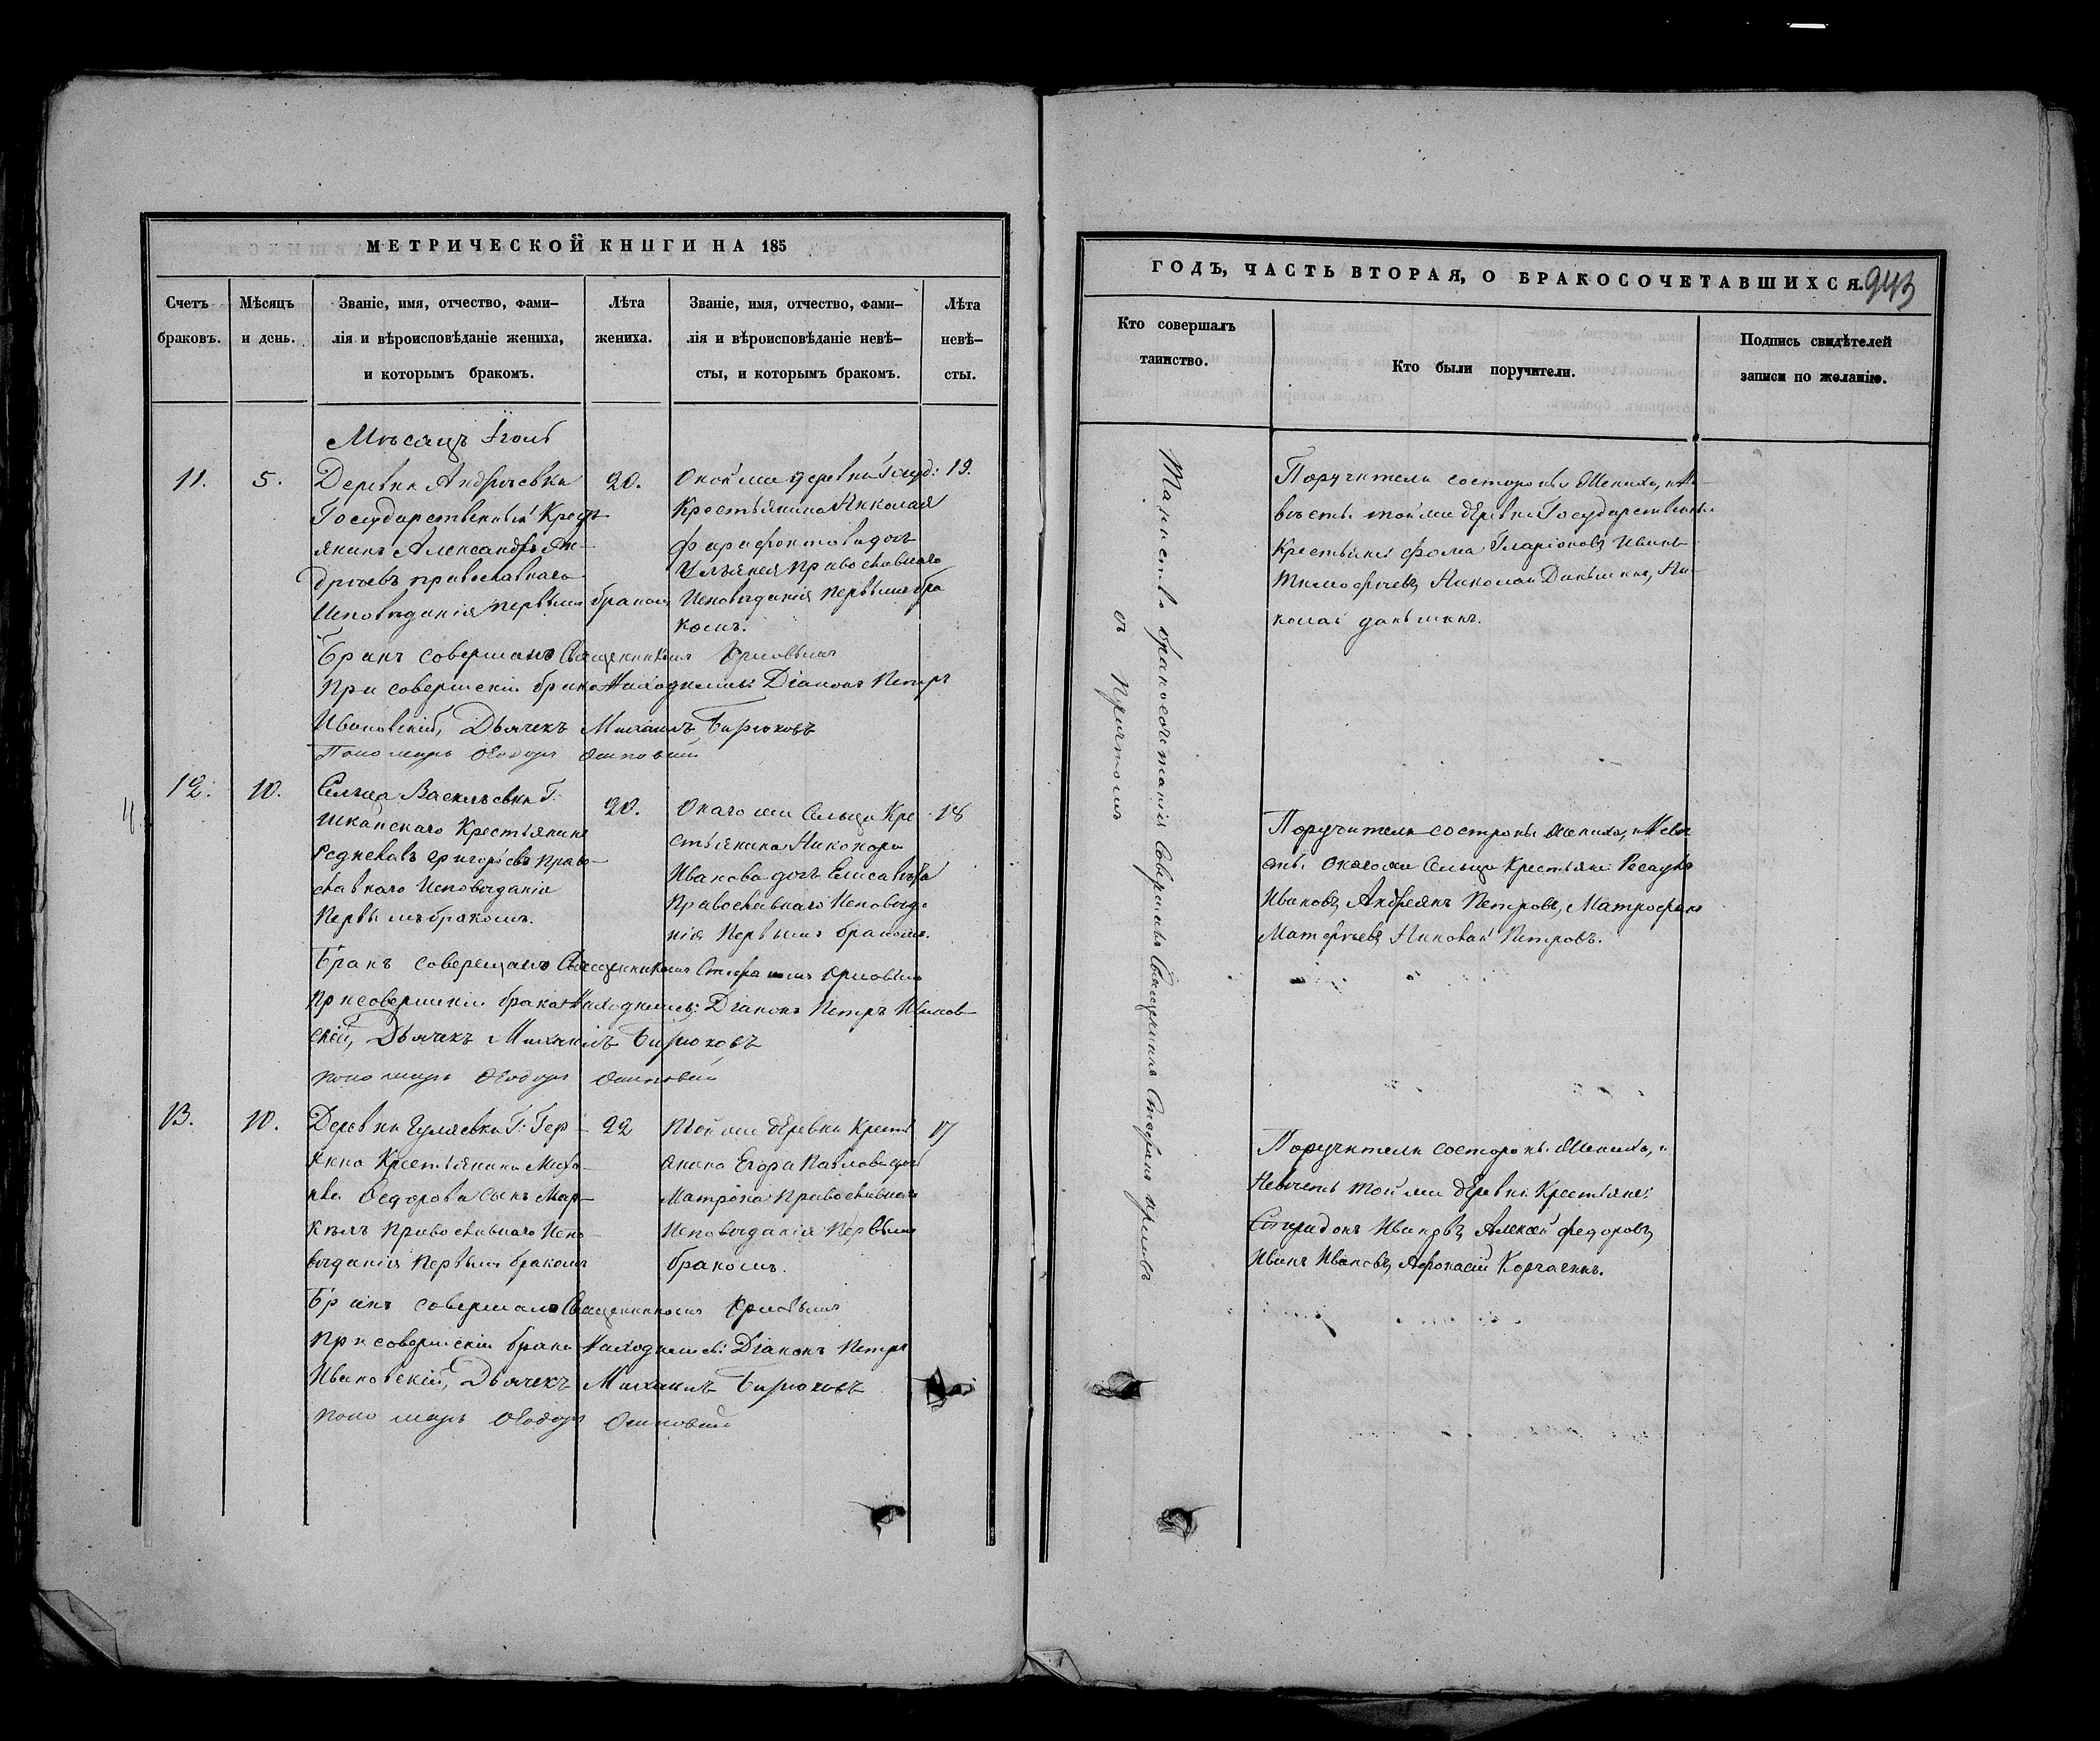 МЕТРИЧЕСКОЙ КНИГИ НА 185
Счетъ браковъ.
Мѣсяцъ и день.
Званіе, имя, отчество, фами-
лія и вѣроисповѣданіе жениха,
и которымъ бракомъ.
Лѣта жениха.
Званіе, имя, отчество, фами-
лія и вѣроисповѣданіе невѣ-
сты, и которымъ бракомъ.
Лѣта невѣ-
сты.
Мѣсяцъ
11.
5.
Деревни Андреевки
Государственный Крест
янинъ Александръ Ан-
дреевъ православнаго
Исповѣданія первымъ бракомъ
20.
деревни Госуд:
Крестьянина Николая
дочь
Православнаго
Исповѣданія первымъ бра
комъ.
19.
Бракъ совершалъ Священникомъ Орловымъ
При совершеніи брака Находились: Діаконъ Петръ
Ивановскій, Дьячекъ Михаилъ Бирюковъ
Пономарь Ѳеодоръ
12.
10.
Сельца Василевки Г:
Крестьянинъ
Григорьевъ Право-
славнаго Исповѣданія
Первымъ бракомъ.
20.
Онаго же Сельца Кре
стьянина Никонора
Иванова дочь Елисавета
Православнаго Исповѣда
нія Первымъ бракомъ.
18
Бракъ совершалъ Священникомъ Стефаномъ Орловымъ
При совершеніи брака Находились: Діаконъ Петръ Иванов-
скій, Дьячекъ Михаилъ Бирюковъ
пономарь Ѳеодоръ
13.
10.
Деревни Гуляевки Г:
Крестьянина
Ѳедорова сынъ Мар-
Православнаго Испо-
вѣданія Первымъ бракомъ
22
Той же деревни Крест
янина Егора Павлова дочь
Матрона Православнаго
Исповѣданія Первымъ
бракомъ.
17
Бракъ совершалъ Священникомъ Орловымъ
При совершеніи брака Находились: Діаконъ Петръ
Ивановскій, Дьячекъ Михаилъ Бирюковъ
пономарь Ѳеодоръ
ГОДЪ, ЧАСТЬ ВТОРАЯ, О БРАКОСОЧЕТАВШИХСЯ.
943
Кто совершалъ
таинство.
Кто были поручители.
Подпись свидѣтелей
записи по желанію.
Таинство бракосочетанія совершилъ Священникъ Стефанъ Орловъ
съ Причтомъ
Поручители состороны Жениха, и Не-
вѣсты той же деревни Государственные
Крестьяне Фома Иларіоновъ, Иванъ
Тимофеевъ, Николай Данькинъ, Ни-
колай данькинъ.
Поручители состроны Жениха, и Невѣ
сты Онаго же Сельца Крестьяне
Ивановъ, Андреянъ Петровъ, Митрофанъ
Матфеевъ, Петровъ.
Поручители состороны Жениха, и
Невѣсты той же деревни Крестьяне:
Спиридонъ Ивановъ, Алексей Федоровъ,
Иванъ Ивановъ, Афонасій Корчагинъ.